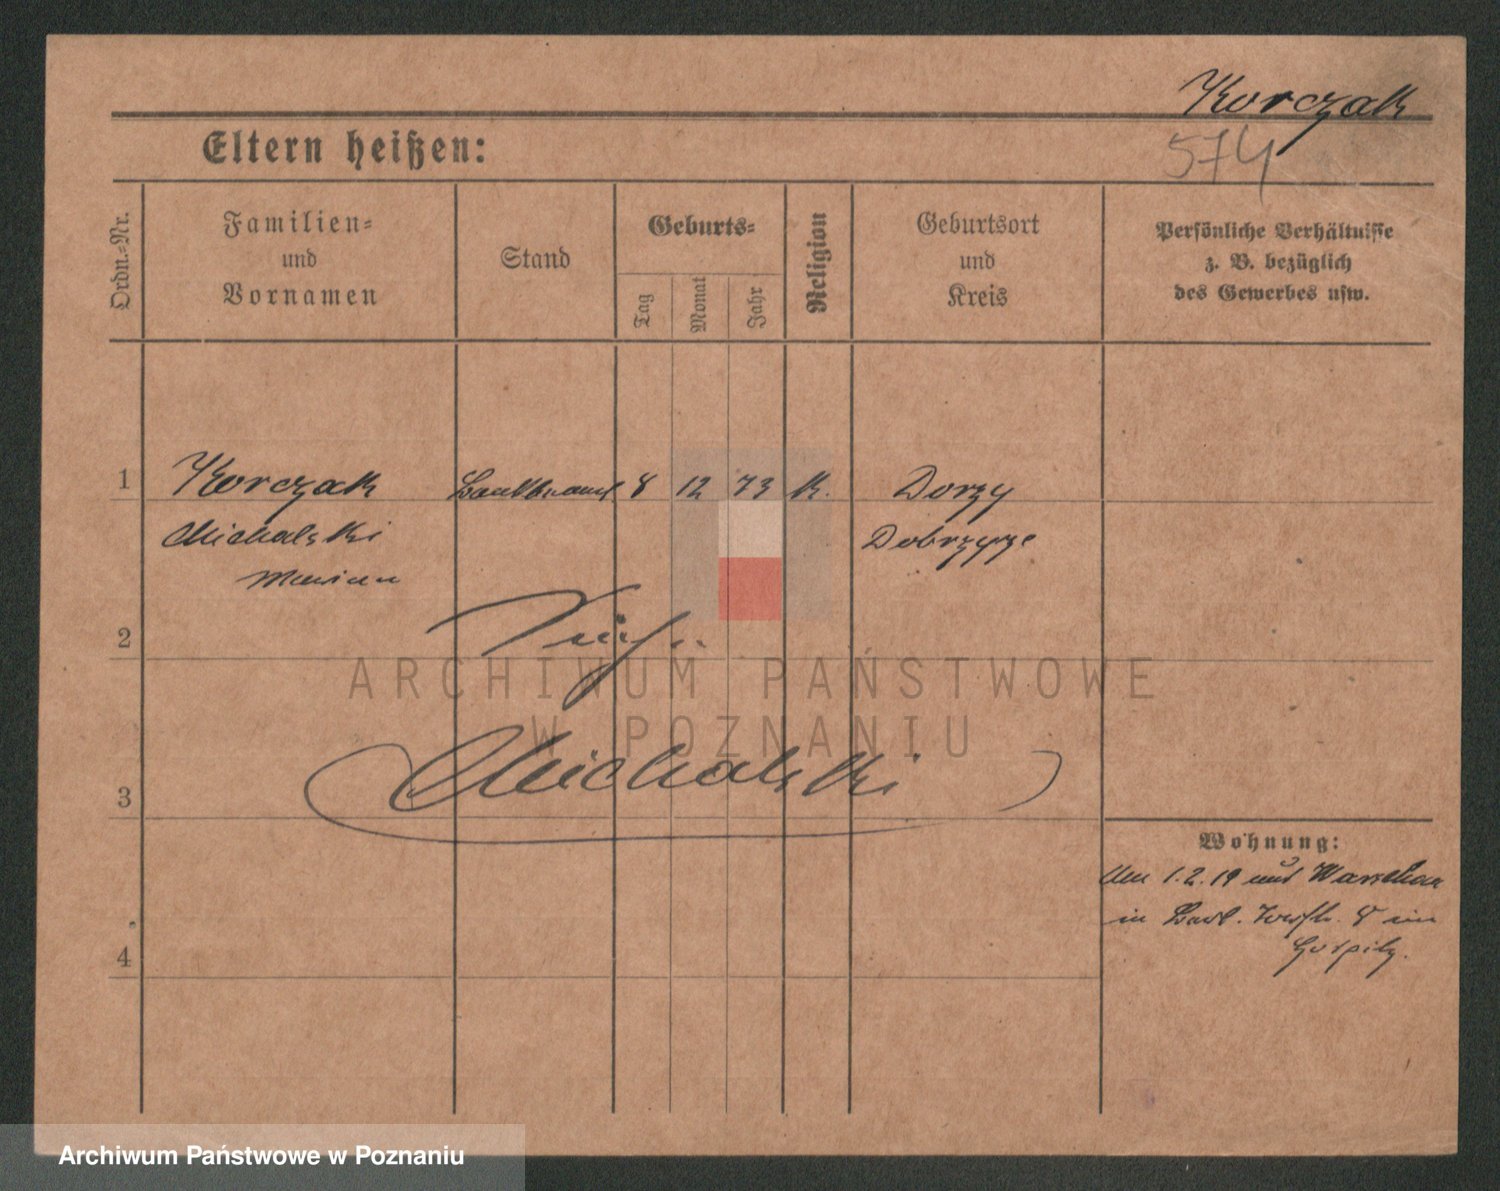 Korczak
574
Eltern heißen:
Ordn.-Nr.
Familien-
und
Vornamen
Stand
Geburts-
Tag
Monat
Jahr
Religion
Geburtsort
und
Kreis
Persönliche Verhältnisse
z. B. bezüglich
des Gewerbes usw.
1
Korczak
Michalski
Marian
8
12
73
k.
Dorzy
2
ARCHIWUM PAŃSTWOWE
W POZNANIU
3
Michalski
Wohnung:
1.2.19 aus Warschau
in 8 im
Hospitz.
4
Archiwum Państwowe w Poznaniu